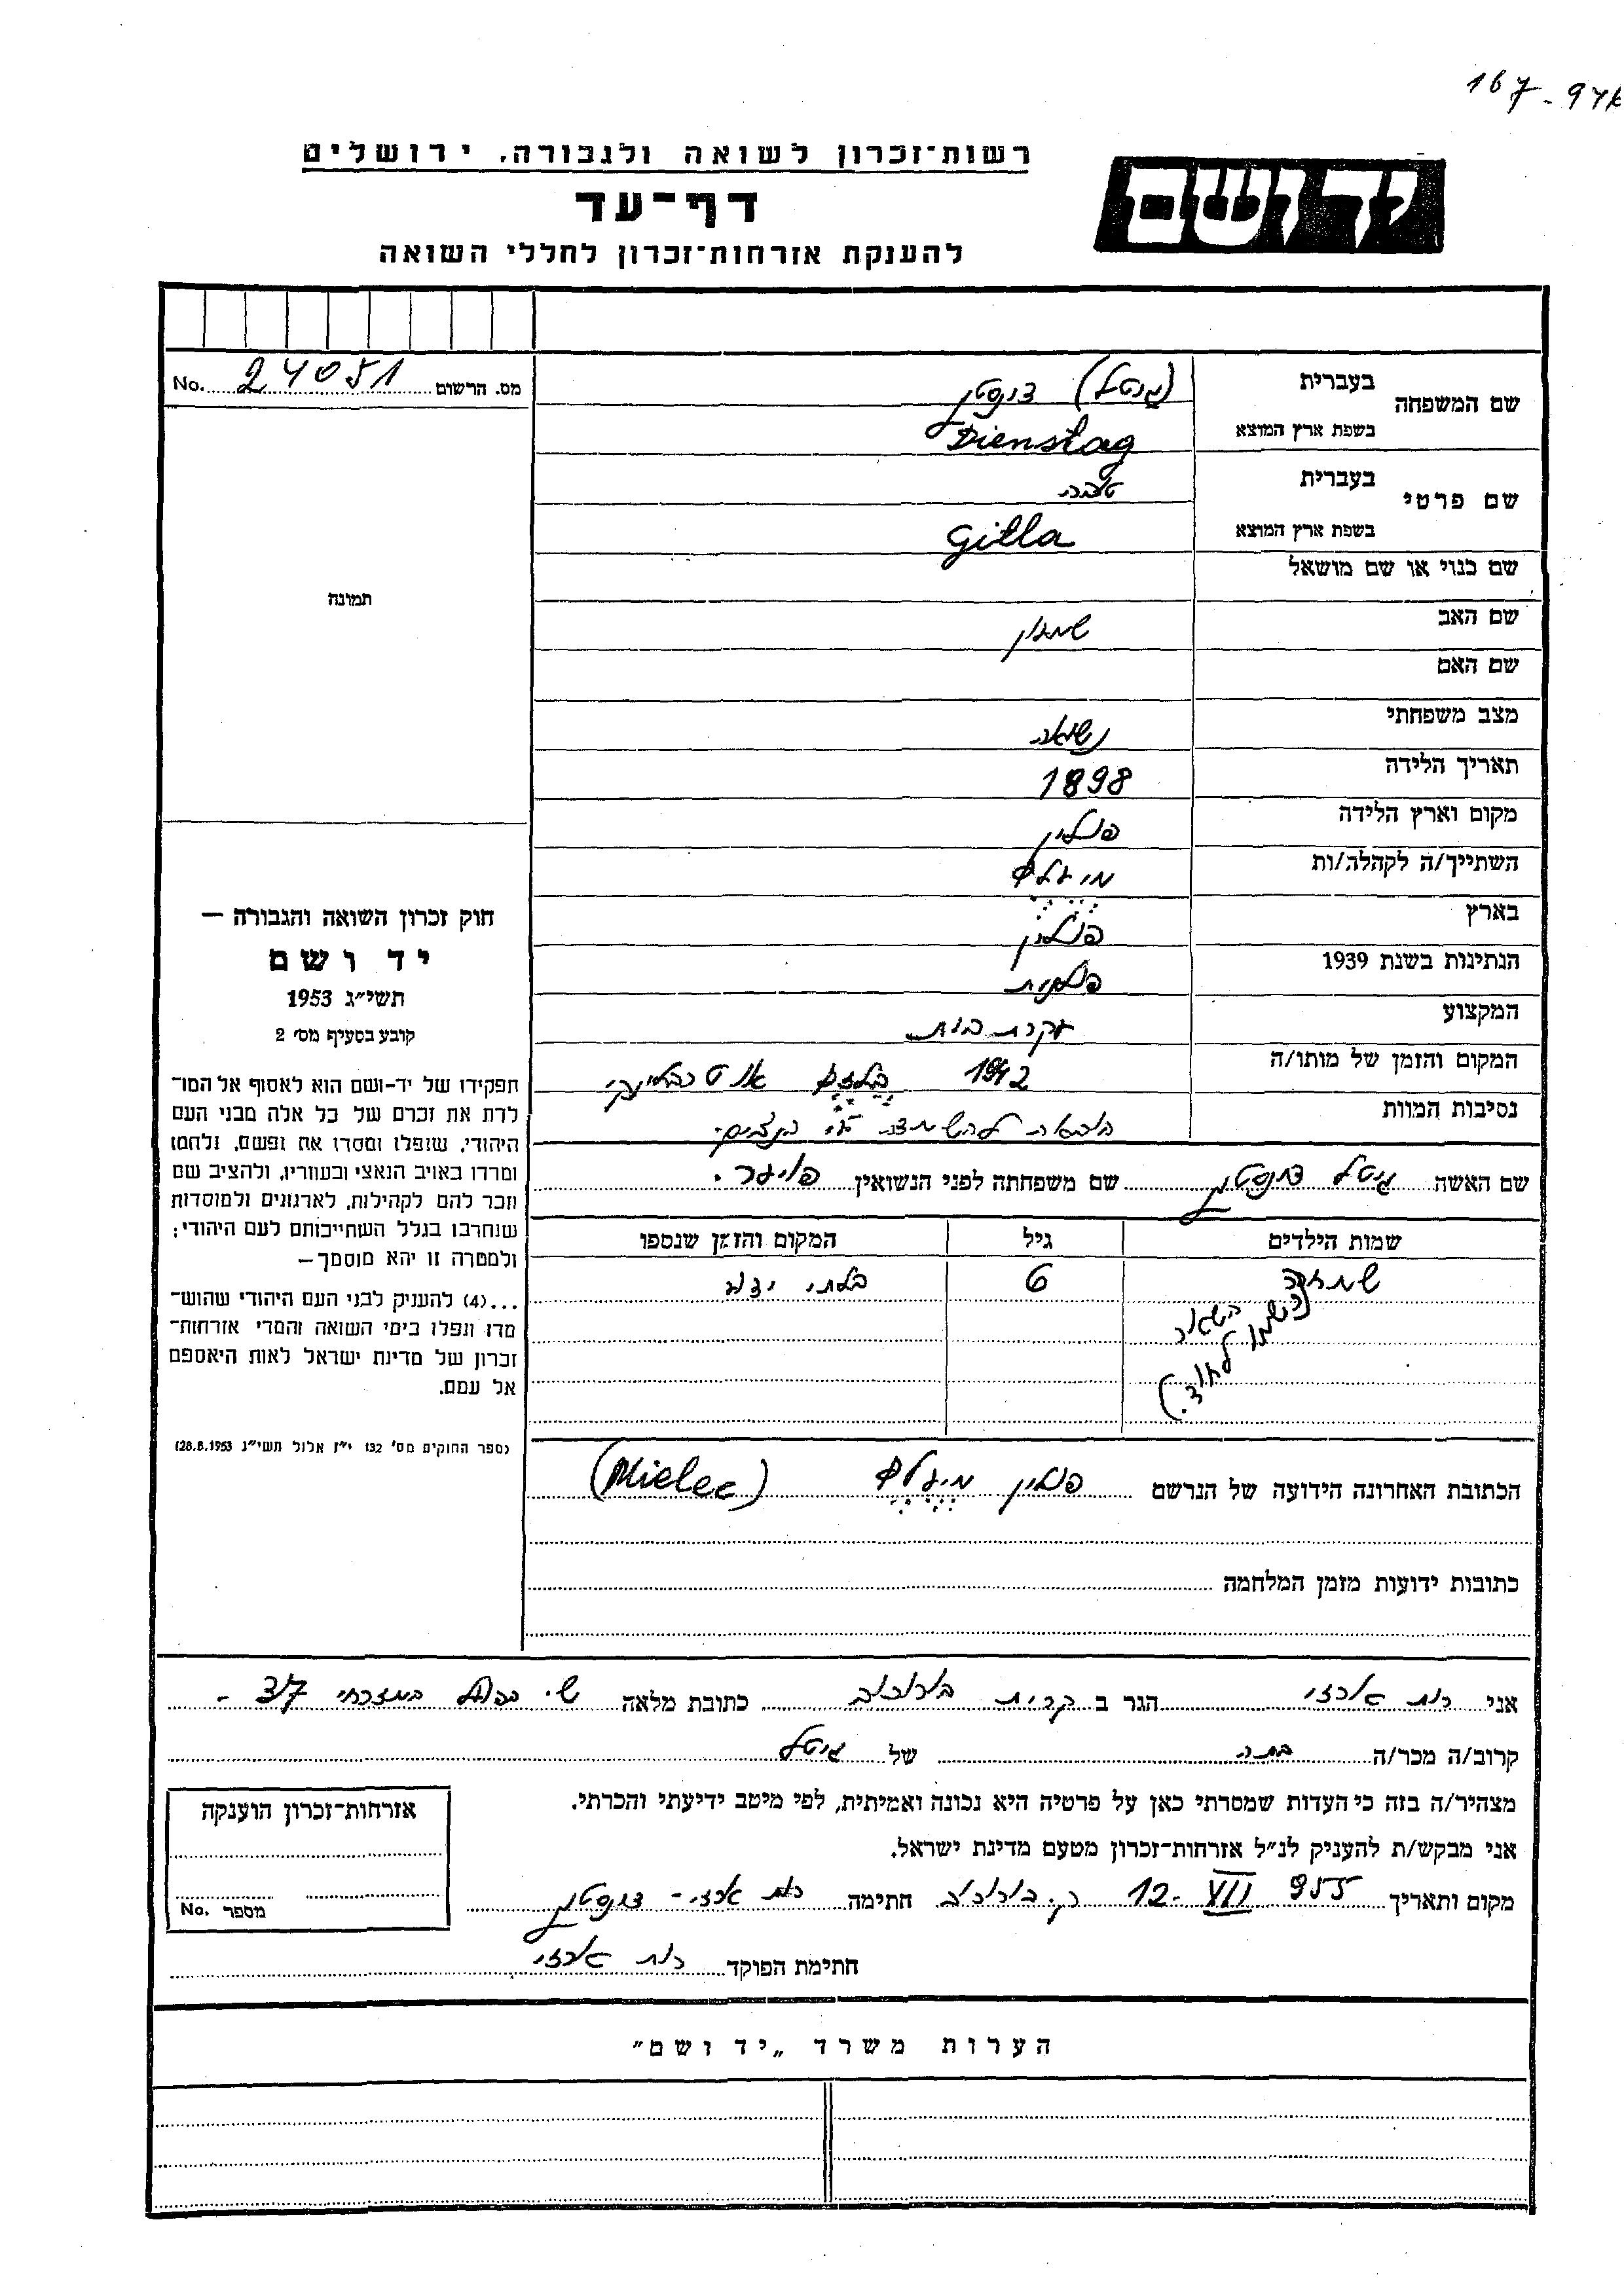 167-974א
רשות־זכרון לשואה ולגבורה, ירושלים
יד ושם
דף־עד
להענקת אזרחות־זכרון לחללי השואה
מס. הרשום 24051 No.
שם המשפחה
בעברית (גיטל)
בשפת ארץ המוצא Dienstag
שם פרטי
בעברית טובה
בשפת ארץ המוצא Gitla
שם כנוי או שם מושאל
שם האב שמעון
שם האם
מצב משפחתי נשואה
תאריך הלידה 1898
מקום וארץ הלידה פולין
השתייך/ה לקהלה/ות מיעלץ
בארץ פולין
הנתינות בשנת 1939 פולנית
המקצוע עקרת בית
המקום והזמן של מותו/ה 1942 בלזץ או טרבלינקי
נסיבות המוות הוצאה להשמדה ע"י הנצים.
שם האשה גיטל דינסטג שם משפחתה לפני הנשואין
שמות הילדים גיל המקום והזמן שנספו
שמחה 6 בלתי ידוע
הכתובת האחרונה הידועה של הנרשם פולין מיעלץ (Mielec)
כתובות ידועות מזמן המלחמה
תמונה
חוק זכרון השואה והגבורה —
יד ושם
תשי״ג 1953
קובע בסעיף מס׳ 2
תפקידו של יד-ושם הוא לאסוף אל המו־
לדת את זכרם של כל אלה מבני העם
היהודי, שנפלו ומסרו את נפשם, נלחמו
ומרדו באויב הנאצי ובעוזריו, ולהציב שם
וזכר להם לקהילות, לארגונים ולמוסדות
שנחרבו בגלל השתייכותם לעם היהודי;
ולמטרה זו יהא מוסמך—
...(4) להעניק לבני העם היהודי שהוש־
מדו ונפלו בימי השואה והמרי אזרחות־
זכרון של מדינת ישראל לאות היאספם
אל עמם.
(ספר החוקים מס׳ 132 י״ז אלול תשי״ג 28.8.1953)
אני רות ארזי הגר ב קרית ביאליק כתובת מלאה שי הפועל המזרחי 37 -
קרוב/ה מכר/ה בתה של גיטל
מצהיר/ה בזה כי העדות שמסרתי כאן על פרטיה היא נכונה ואמיתית, לפי מיטב ידיעתי והכרתי.
אני מבקש/ת להעניק לנ״ל אזרחות־זכרון מטעם מדינת ישראל.
מקום ותאריך 12. VII 955 ק. ביאליק חתימה רות ארזי - דינסטג
חתימת הפוקד רות ארזי
אזרחות־זכרון הוענקה
מספר No.
הערות משרד „יד ושם״